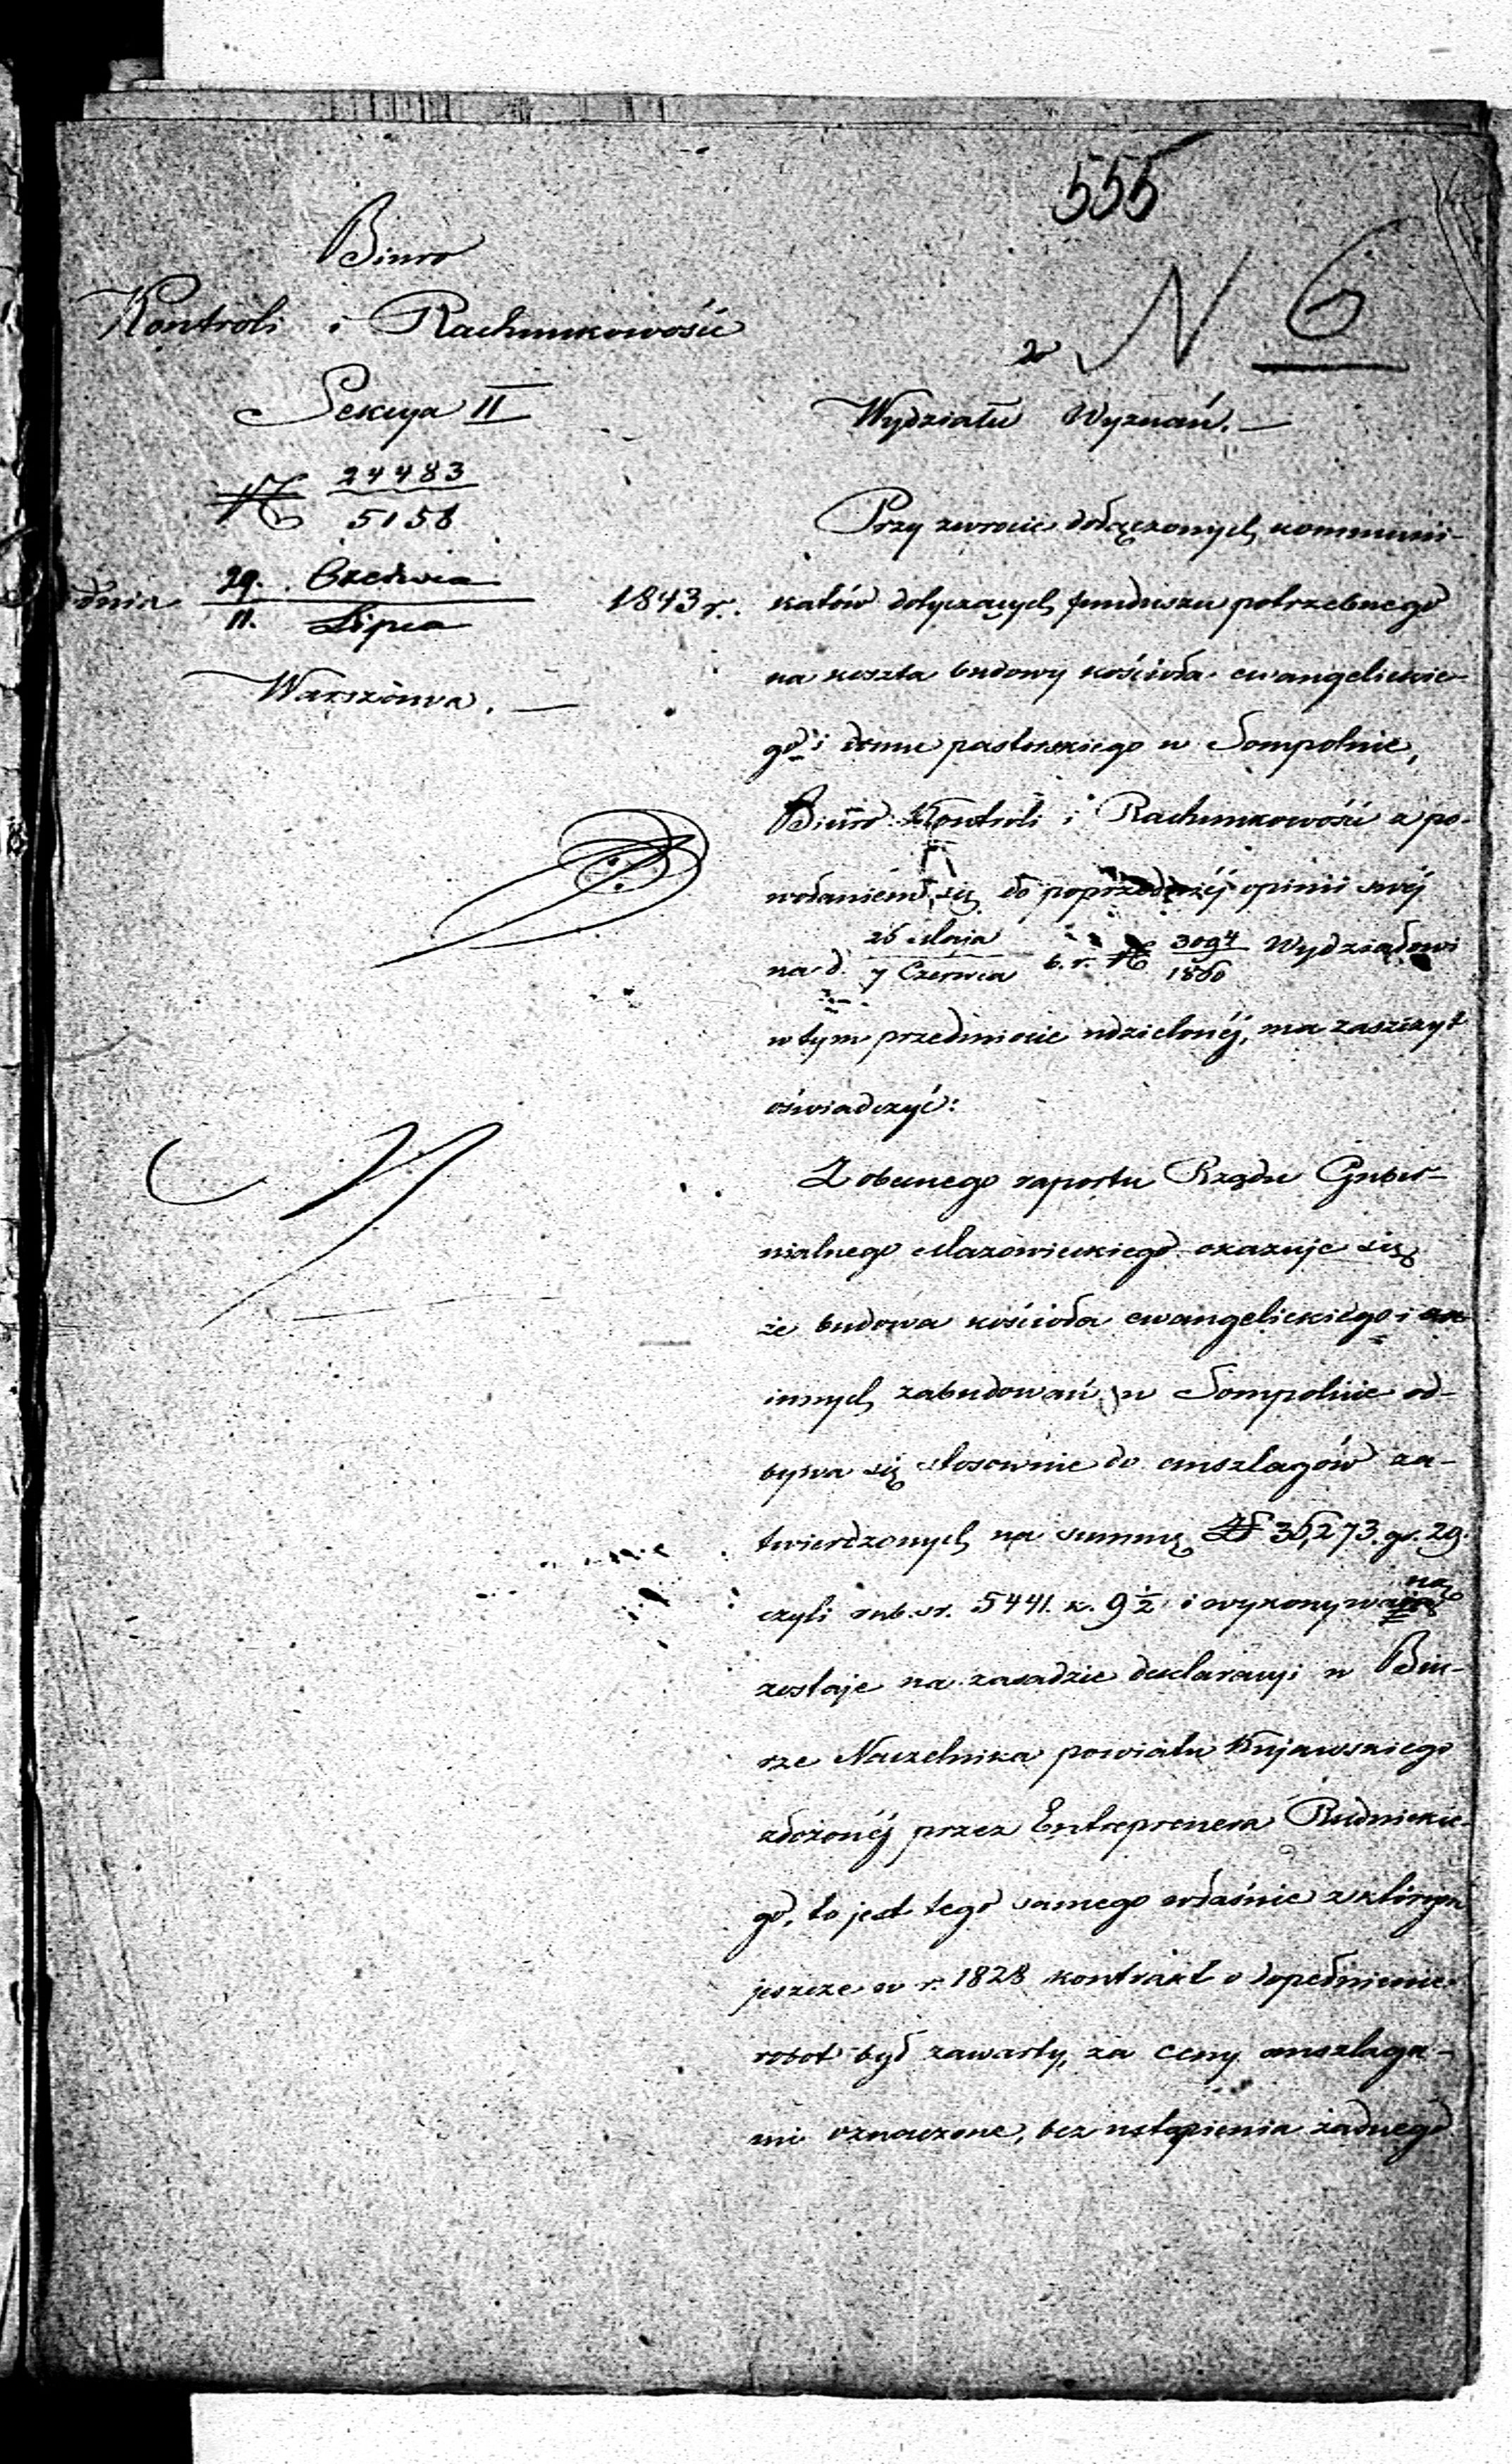 555
Biuro
Kontroli i Rachunkowości
Sekcya II
№ 24483
5156
dnia 29. Czerwca 1843 r.
11. Lipca
Warszawa.
do N 6
Wydziału Wyznań.
Przy zwrocie dołączonych kommuni-
katów dotyczących funduszu potrzebnego
na koszta budowy kościoła ewangelickie-
go i domu pastorskiego w Sompolnie,
Biuro Kontroli i Rachunkowości z po-
wołaniem się do poprzedniéj opinii swéj
na d. 26 Maja
7 Czerwca b. r. № 3094
1860 Wydziałowi
w tym przedmiocie udzielonéj, ma zaszczyt
oświadczyć:
Z obecnego raportu Rządu Guber-
nialnego Mazowieckiego okazuje się
że budowa kościoła ewangelickiego i
innych zabudowań w Sompolnie od-
bywa się stosownie do anszlagów za-
twierdzonych na summę Zł 36,273. gr. 29.
czyli rub. sr. 5441. k. 9 1/2 i wykonywaną
zostaje na zasadzie deklaracyi w Biu-
rze Naczelnika powiatu Kujawskiego
złożonéj przez Entreprenera Rudnickie-
go, to jest tego samego właśnie z którym
jeszcze w r. 1828 kontrakt o dopełnienie
robot był zawarty, za ceny anszlaga-
mi oznaczone, bez ustąpienia żadnego